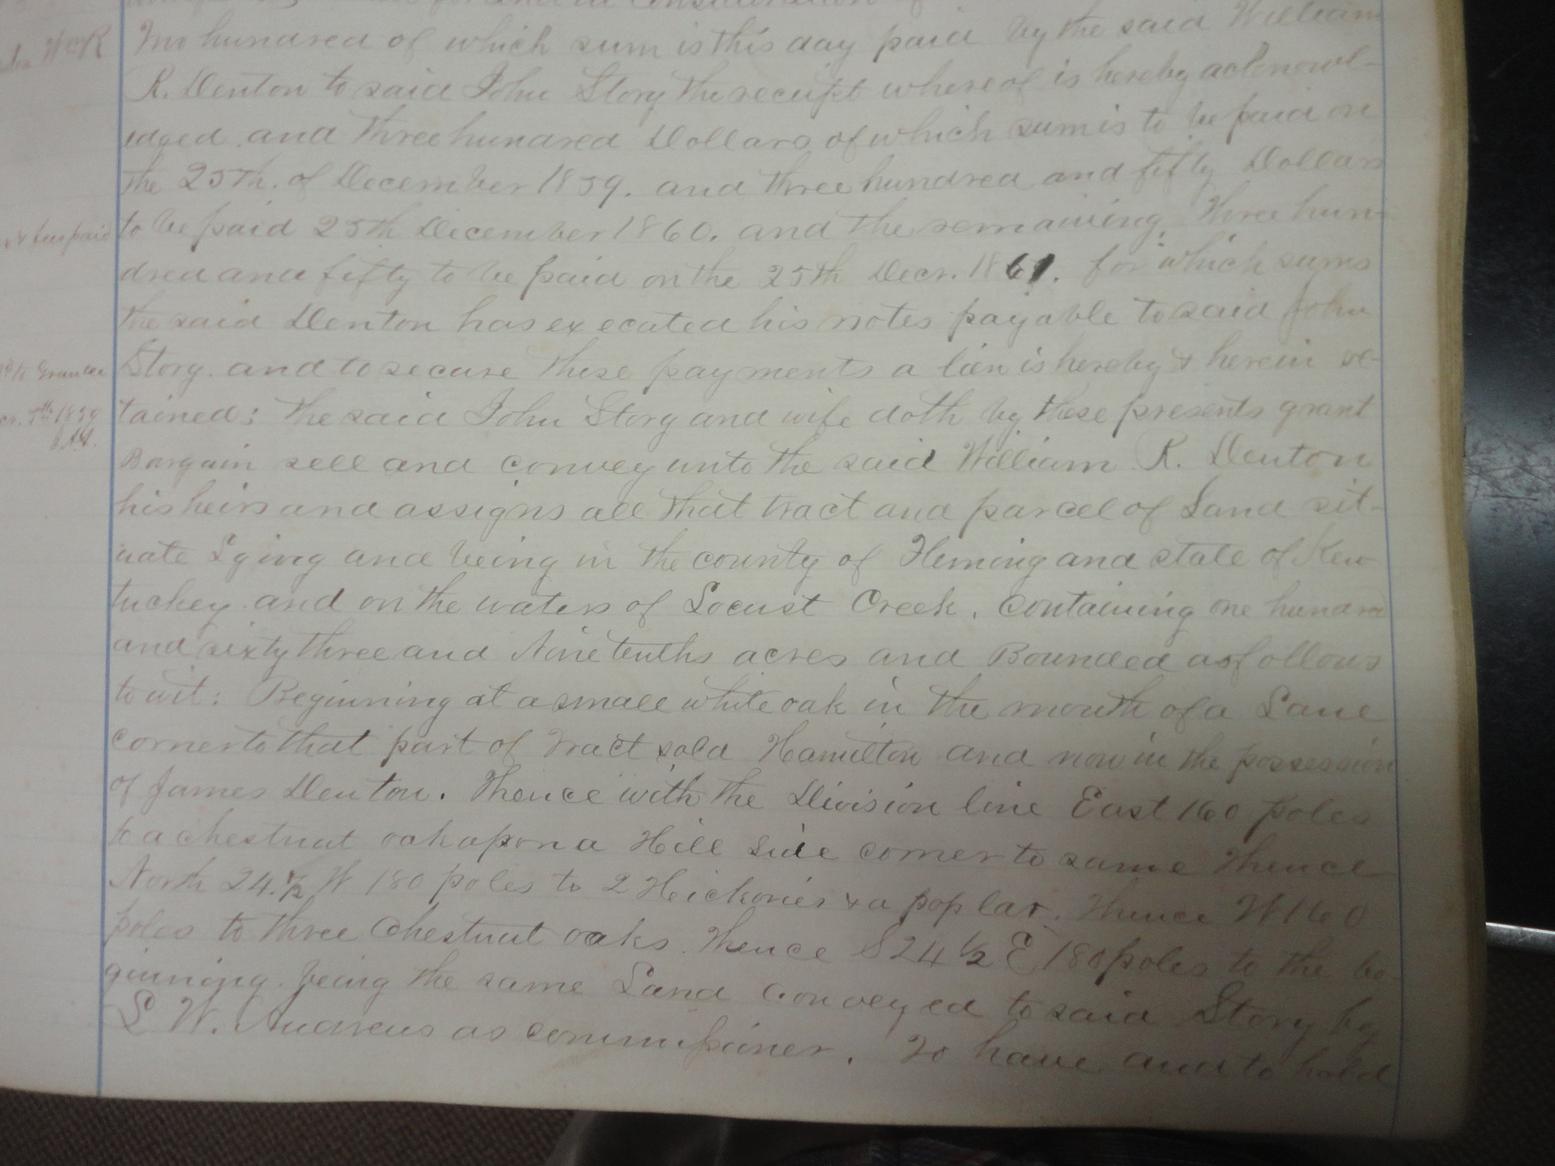 for and in consideration of
Two hundred of which sum is this day paid by the said William
R. Denton to said John Story the receipt whereof is hereby acknowl-
edged. and three hundred Dollars of which sum is to be paid on
the 25th. of December 1859. and three hundred and fifty Dollars
to be paid 25th December 1860. and the remaining Three hun-
dred and fifty to be paid on the 25th Decr. 1861. for which sums
the said Denton has executed his notes payable to said John
Story. and to secure these payments a lien is hereby & herein re-
tained; The said John Story and wife doth by these presents grant
Bargain sell and convey unto the said William R. Denton
his heirs and assigns all that tract and parcel of Land sit-
uate Lying and being in the county of Fleming and state of Ken
tuckey and on the waters of Locust Creek. Containing one hundred
and sixty three and Nine tenths acres and Bounded as follows
to wit: Beginning at a small white oak in the mouth of a Lane
corner to that part of tract sold Hamilton and now in the possession
of James Denton. Thence with the Division line East 160 poles
to a chestnut oak upon a Hill side corner to same Thence
North 24.1/2 W 180 poles to 2 Hickories & a poplar. Thence W 160
poles to three Chestnut oaks. Thence S 24 1/2 E 180 poles to the be-
ginning. being the same Land Conveyed to said Story by
L W. Andrews as commissioner. To have and to hold
W R
paid
to Grantee
1859